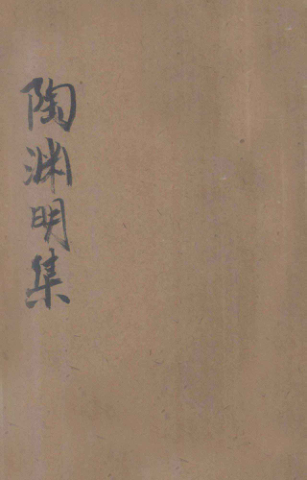 陶渊明集